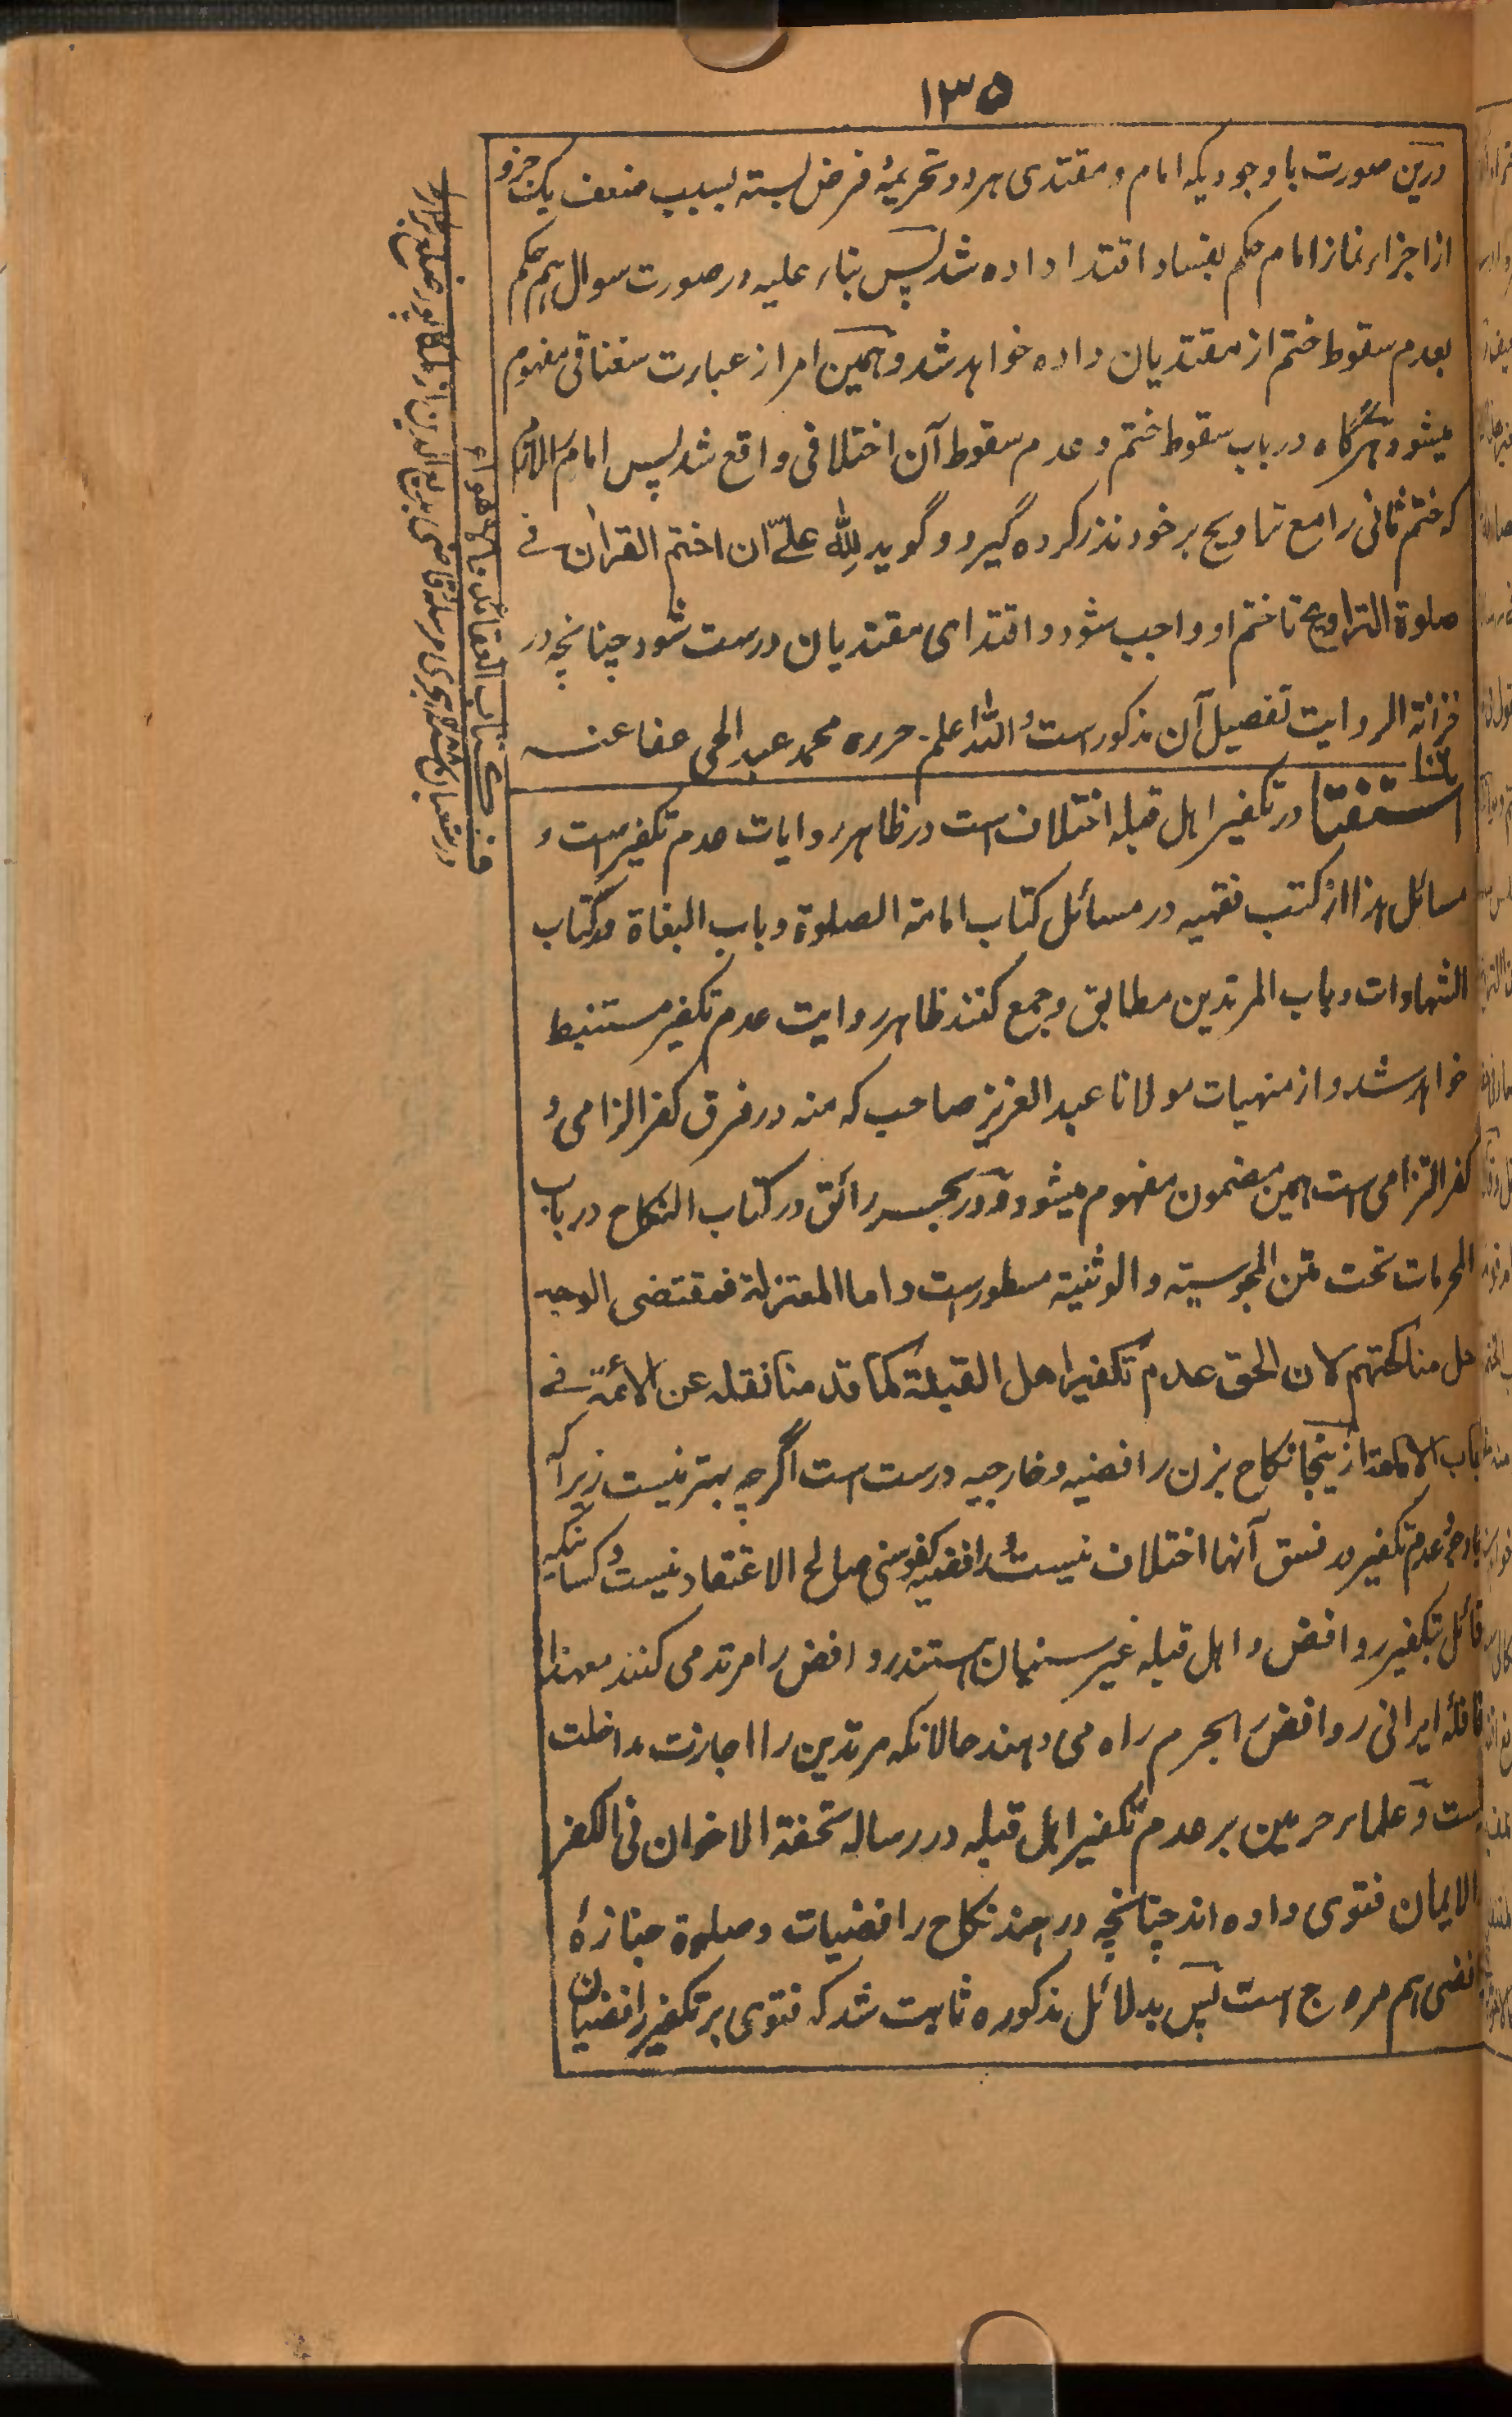 ۱۳۵
درین صورت باوجودیکه امام و مقتدی هر دو تحریمهٔ فرض بسته بسبب ضعف یک جزو
از اجزاء نماز امام حکم بفساد اقتدا داده شد پس بناء علیه در صورت سوال هم حکم
بعدم سقوط ختم از مقتدیان داده خواهد شد و همین امر از عبارت سغناقی مفهوم
میشود و هرگاه در باب سقوط ختم و عدم سقوط آن اختلافی واقع شد پس امام را لازم
که ختم ثانی را مع تراویح بر خود نذر کرده گیرد و گوید لِلّٰه علیّ ان اختم القران فی
صلوة التراویح تا ختم او واجب شود و اقتدای مقتدیان درست شود چنانچه در
خزانة الروایت تفصیل آن مذکور است و اللّٰه اعلم حرره محمد عبد الحی عفا عنه
استفتا در تکفیر اهل قبله اختلاف است در ظاهر روایات عدم تکفیر است و
مسائل هذا از کتب فقهیه در مسائل کتاب امامة الصلوة و باب البغاة و کتاب
الشهادات و باب المرتدین مطابق و جمع کنند ظاهر روایت عدم تکفیر مستنبط
خواهد شد و از منهیات مولانا عبد العزیز صاحب که منه در فرق کفر الزامی و
کفر التزامی است همین مضمون مفهوم میشود و در بحر رائق در کتاب النکاح در باب
المحرمات تحت متن المجوسیة و الوثنیة مسطور است و اما المعتزلة فمقتضی الوجه
حل مناکحتهم لان الحق عدم تکفیر اهل القبلة کما قدمنا نقله عن الائمة فی
باب الامامة ازینجا نکاح بزن رافضیه و خارجیه درست است اگرچه بهتر نیست زیرا که
باوجود عدم تکفیر در فسق آنها اختلاف نیست و رافضیه کفو سنی صالح الاعتقاد نیست و کسانیکه
قائل بتکفیر روافض و اهل قبله غیر سنیان هستند روافض را مرتد می کنند معهذا
قافلهٔ ایرانی روافض را بحرم راه می دهند حالانکه مرتدین را اجازت مداخلت
است و علماء حرمین بر عدم تکفیر اهل قبله در رساله تحفة الاخوان فی الکفر
الایمان فتوی داده اند چنانچه در هند نکاح رافضیات و صلوة جنازهٔ
رافضی هم مروج است پس بدلائل مذکوره ثابت شد که فتوی بر تکفیر رافضیان
فی کتاب العقائد